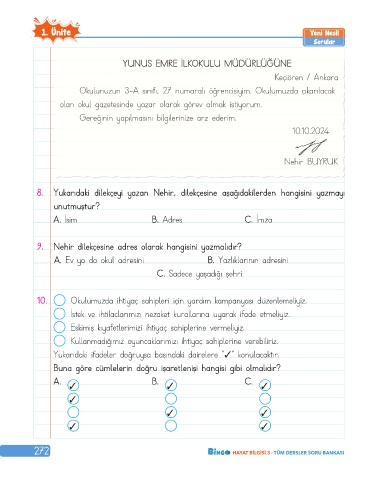 1. Ünite
Yeni Nesil
Sorular
YUNUS EMRE İLKOKULU MÜDÜRLÜĞÜNE
Keçiören / Ankara
Okulunuzun 3-A sınıfı, 27 numaralı öğrencisiyim. Okulumuzda çıkarılacak
olan okul gazetesinde yazar olarak görev almak istiyorum.
Gereğinin yapılmasını bilgilerinize arz ederim.
10.10.2024
Nehir BUYRUK
8. Yukarıdaki dilekçeyi yazan Nehir, dilekçesine aşağıdakilerden hangisini yazmayı
unutmuştur?
A. İsim B. Adres C. İmza
9. Nehir dilekçesine adres olarak hangisini yazmalıdır?
A. Ev ya da okul adresini B. Yazlıklarının adresini
C. Sadece yaşadığı şehri
10. Okulumuzda ihtiyaç sahipleri için yardım kampanyası düzenlemeliyiz.
İstek ve ihtiyaçlarımızı nezaket kurallarına uyarak ifade etmeliyiz.
Eskimiş kıyafetlerimizi ihtiyaç sahiplerine vermeliyiz.
Kullanmadığımız oyuncaklarımızı ihtiyaç sahiplerine verebiliriz.
Yukarıdaki ifadeler doğruysa başındaki dairelere "✓" konulacaktır.
Buna göre cümlelerin doğru işaretlenişi hangisi gibi olmalıdır?
A. ✓ B. ✓ C. ✓
✓
✓ ✓
✓ ✓
272
BİNGO HAYAT BİLGİSİ 3 - TÜM DERSLER SORU BANKASI